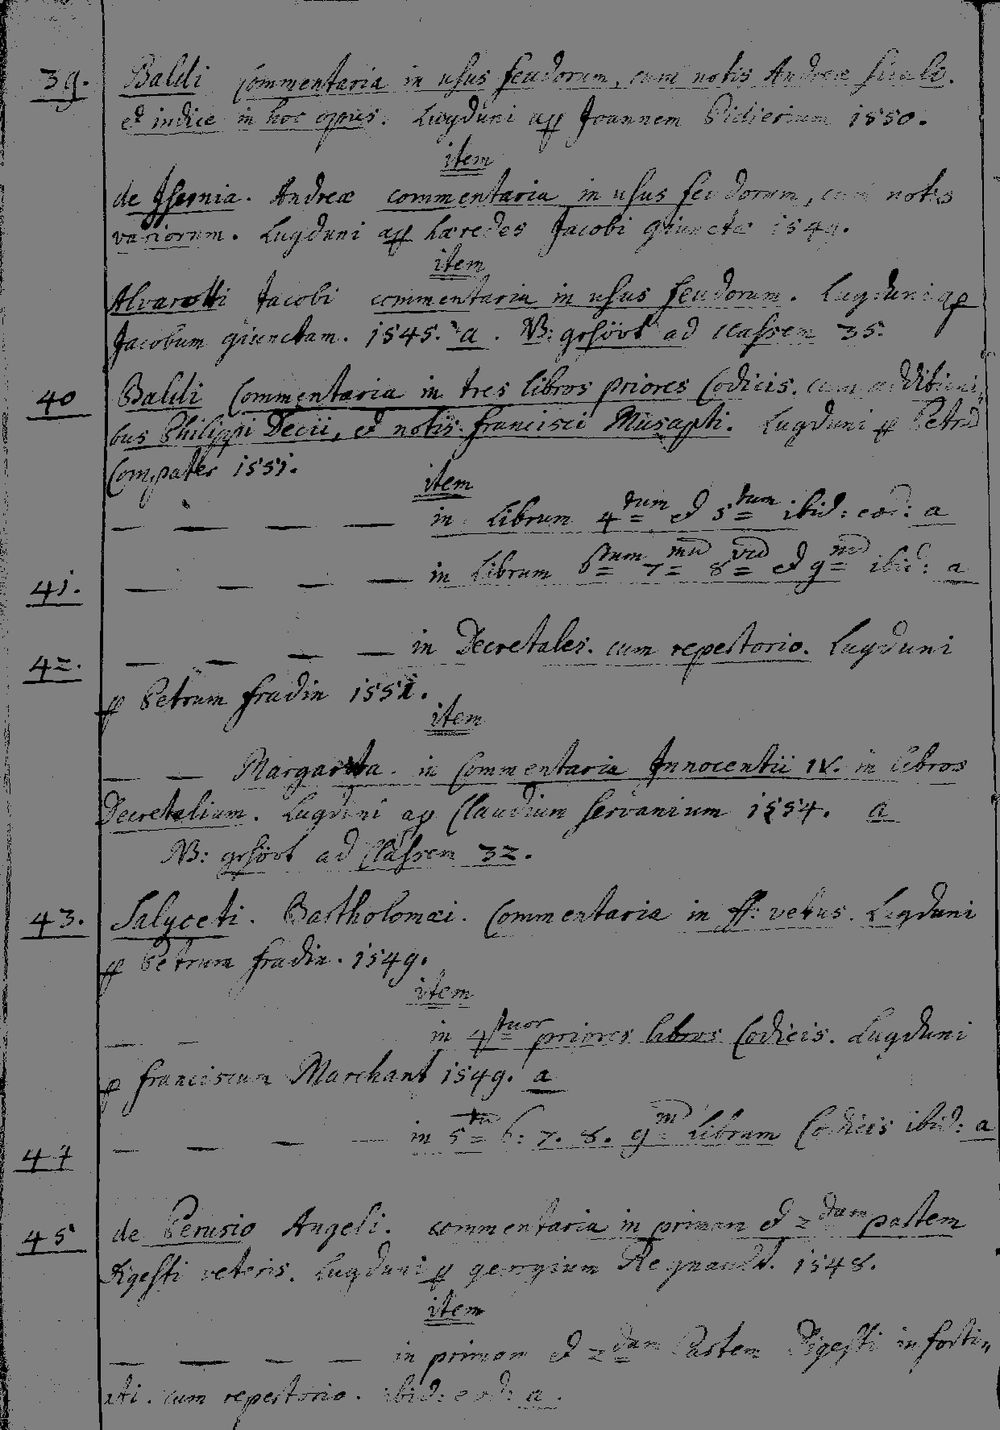 39. Baldi Commentaria in usus feudorum, cum notis Andreæ
et indice in hoc opus. Lugduni ap Joannem Pidierium 1550.
item
de Isernia. Andreæ commentaria in usus feudorum, cum notis
variorum. Lugduni ap hæredes Jacobi Giunctæ 1549.
item
Alvarotti Jacobi commentaria in usus feudorum. Lugduni ap
Jacobum giunctam. 1545. a. NB: gehört ad classem 35.
40 Baldi Commentaria in tres libros priores Codicis. cum additioni„
bus Philippi Decii, et notis francisci Musapti. Lugduni p Petrū
Compater 1551.
item
— — — — in Librum 4tum et 5tum ibid: eod: a
41. — — — — in Librum 6tum 7mū 8vū et 9nū ibid: a
42. — — — — in Decretales. cum repertorio. Lugduni
p Petrum fradin 1551.
item
— — Margarita. in Commentaria Innocentii IV. in libros
Decretalium. Lugduni ap Claudium servanium 1554. a
NB: gehört ad Classem 32.
43. Salyceti. Bartholomæi. Commentaria in ff: vetus. Lugduni
p Petrum fradin. 1549.
item
— — in 4tuor priores libros Codicis. Lugduni
p franciscum Marchant 1549. a
47 — — — — in 5tū 6: 7. 8. 9nū Librum Codicis ibid: a
45 de Perusio Angeli. commentaria in primam et 2dam partem
Digesti veteris. Lugduni p georgium Regnault. 1548.
item
— — — — in primam et 2dam Partem Digesti infortia„
ati. cum repertorio. ibid: eod: a.